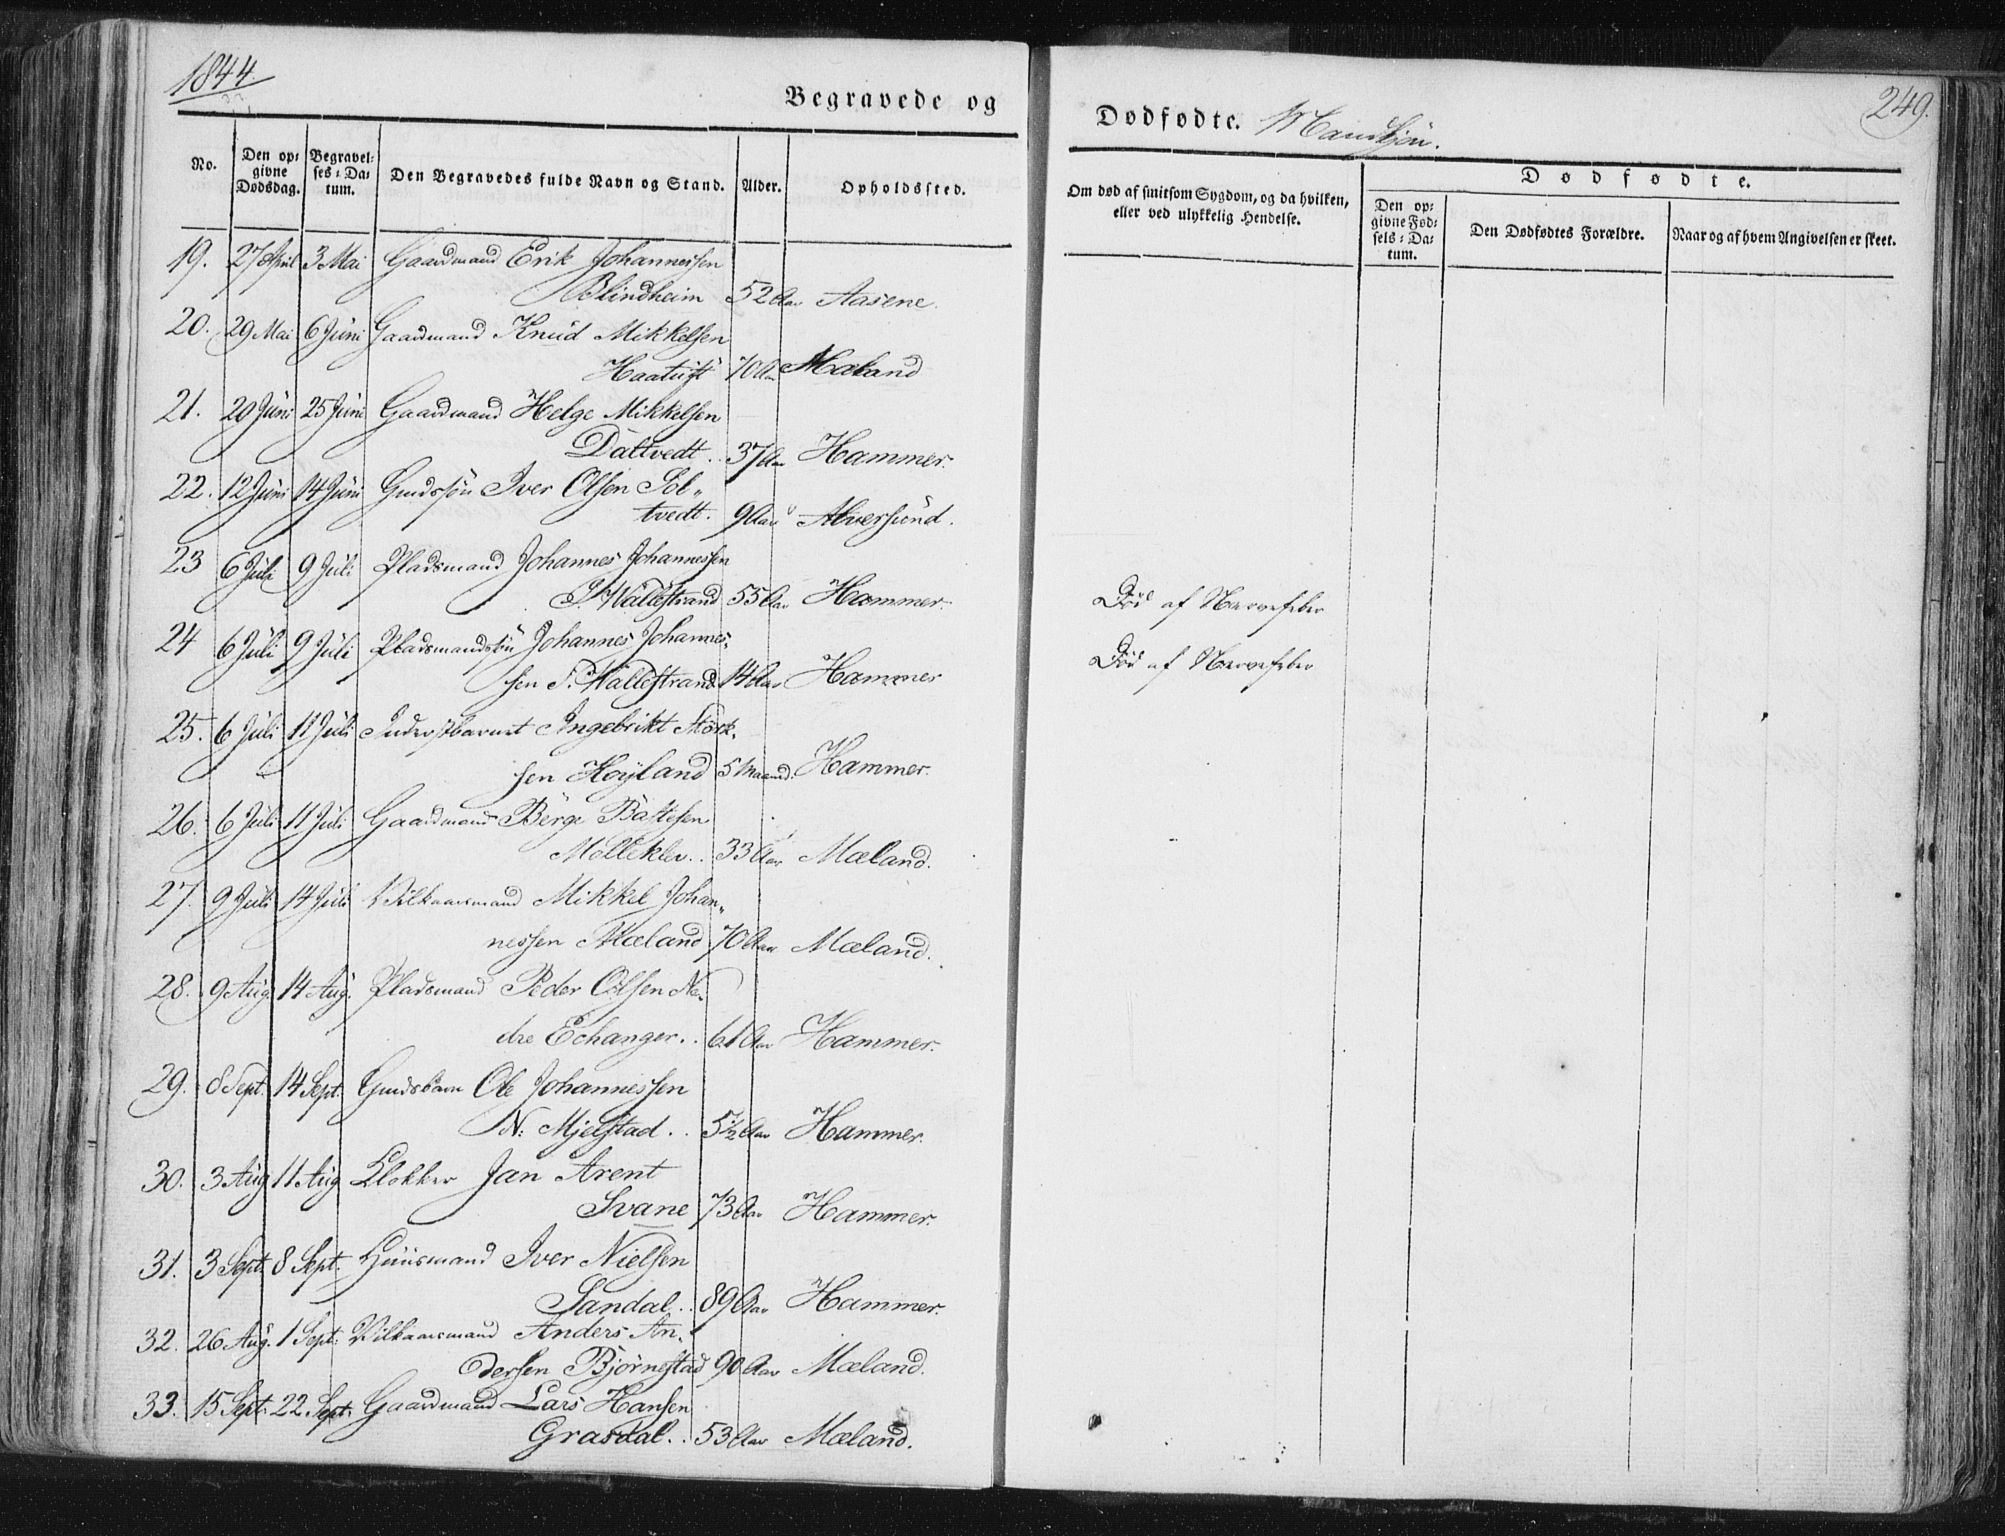 1844.
Begravede og
Dødfødte. Mandkjøn.
249.
No.
Den op-
givne
Dødsdag.
Begravel-
ses-Da-
tum.
Den Begravedes fulde Navn og Stand.
Alder.
Opholdssted.
Om død af smitsom Sygdom, og da hvilken,
eller ved ulykkelig Hendelse.
Dødfødte.
Den op-
givne Fød-
sels-Da-
tum.
Den Dødfødtes Forældre.
Naar og af hvem Angivelsen er skeet.
19. 27 April 3 Mai Gaardmand Erik Johannessen
Blindheim 52 Aar Aasene.
20. 29 Mai 6 Juni Gaardmand Knud Mikkelsen
70 Aar Mæland
21. 20 Juni 25 Juni Gaardmand Helge Mikkelsen
Daltvedt. 37 Aar Hammer.
22. 12 Juni 14 Juni Gmdssøn Iver Olsen Sol„
tvedt. 9 Aar Alversund.
23 6 Juli 9 Juli Pladsmand Johannes Johannessen
I. Wallestrand 55 Aar Hammer. Død af Nervefeber
24 6 Juli 9 Juli Pladsmandssøn Johannes Johannes„
sen I. Wallestrand 14 Aar Hammer Død af Nervefeber
25. 6 Juli 11 Juli Inderstbarnet Ingebrikt Størk„
sen Høyland 5 Maaned. Hammer.
26. 6 Juli 11 Juli Gaardmand Børge Bastesen
Molleklev.. 33 Aar Mæland.
27. 9 Juli 14 Juli Vilkaarsmand Mikkel Johan„
nessen Mæland 70 Aar Mæland.
28. 9 Aug. 14 Aug. Pladsmand Peder Olsen Ne„
dre Echanger.. 61 Aar Hammer.
29. 8 Sept. 14 Sept. Gmdsbarn Ole Johannessen
N: Mjelstad.. 5½ Aar Hammer.
30. 3 Aug 11 Aug Klokker Jan Arent
Svane 73 Aar Hammer.
31. 3 Sept. 8 Sept. Huusmand Iver Nielsen
Sandal.. 89 Aar Hammer.
32. 26 Aug. 1 Sept: Vilkaarsmand Anders An„
dersen Bjørnestad 90 Aar Mæland.
33. 15 Sept: 22 Sept: Gaardmand Lars Hansen
Grasdal.. 53 Aar Mæland.